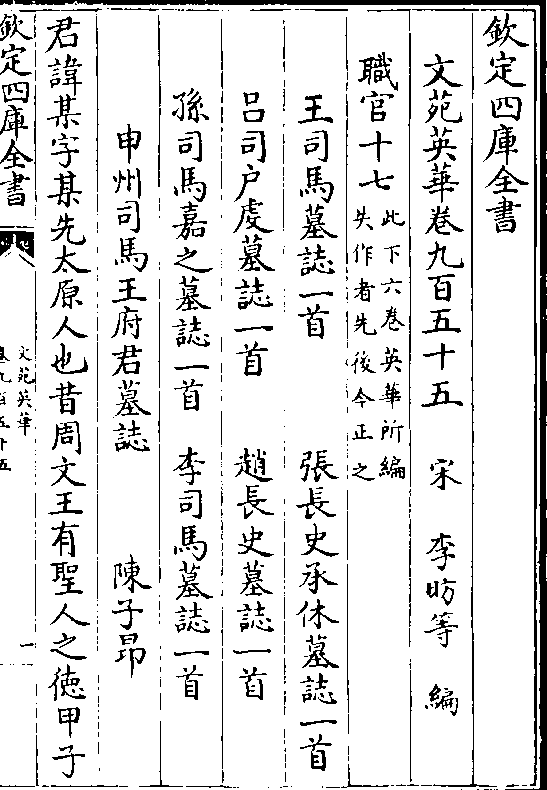 欽定四庫全書
文苑英華卷九百五十五 宋 李昉等 編
職官十七 此下六卷英華所編
失作者先後今正之
王司馬墓誌一首 張長史承休墓誌一首
呂司户虔墓誌一首 趙長史墓誌一首
孫司馬嘉之墓誌一首 李司馬墓誌一首
申州司馬王府君墓誌 陳子昂
君諱某字某先太原人也昔周文王有聖人之徳甲子
欽定四庫全書
文苑英華
卷九百五十五
一